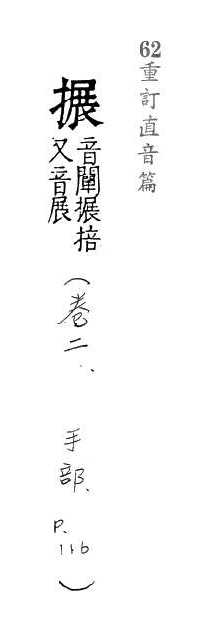 62重訂直音篇
搌 音闡搌
又音展
(卷二、手部、P.116)